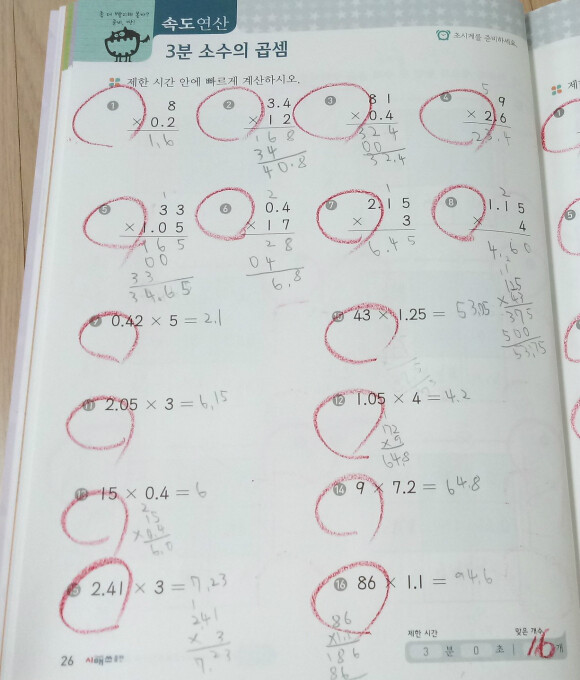 속도연산
초시계를 준비하세요.
3분 소수의 곱셈
제한 시간 안에 빠르게 계산하시오.
① 8
× 0.2
1.6
② 3.4
× 1 2
1 6 8
3 4
4 0.8
③ 8 1
× 0.4
3 2 4
0 0
3 2.4
④ 5
9
× 2.6
2 3.4
⑤ 1
3 3
× 1.0 5
1 6 5
0 0
3 3
3 4.6 5
⑥ 2
0.4
× 1 7
2 8
0 4
6.8
⑦ 1
2.1 5
× 3
6.4 5
⑧ 2
1.1 5
× 4
4.6 0
⑨ 0.42 × 5 = 2.1
⑩ 43 × 1.25 = 53.75
125
× 43
375
500
53.75
⑪ 2.05 × 3 = 6.15
⑫ 1.05 × 4 = 4.2
1
72
× 9
64.8
⑬ 15 × 0.4 = 6
2
15
× 0.4
6.0
⑭ 9 × 7.2 = 64.8
⑮ 2.41 × 3 = 7.23
1
241
× 3
7.23
⑯ 86 × 1.1 = 94.6
86
×1.1
186
86
제한 시간
3 분 0 초
맞은 개수
16 개
26